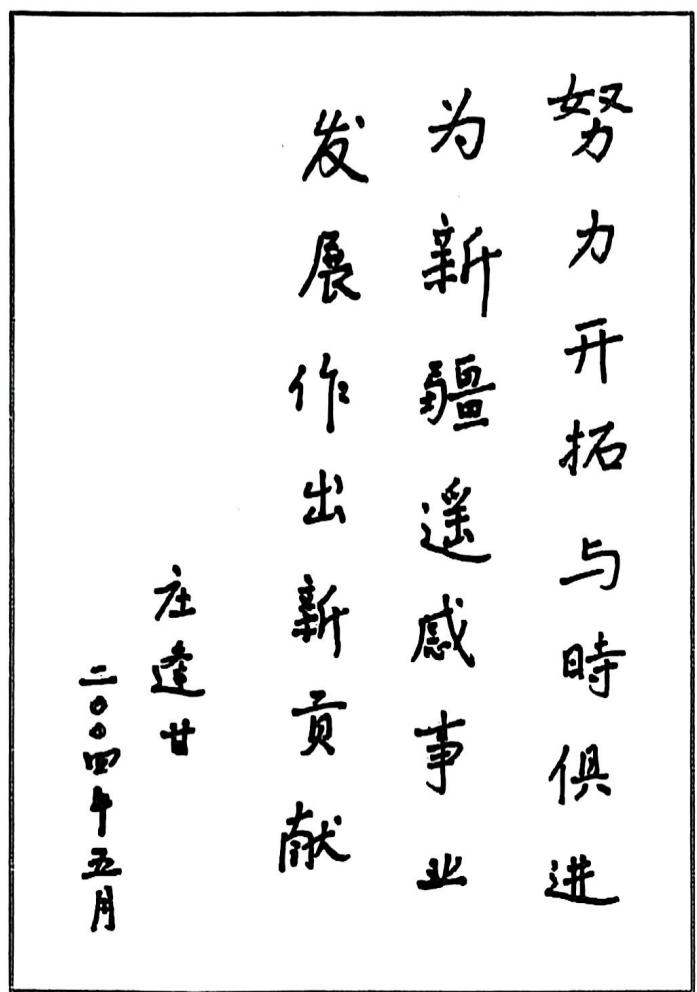 努力开拓与時俱进
为新疆遥感事业
发展作出新贡献
庄逢甘
二〇〇四年五月